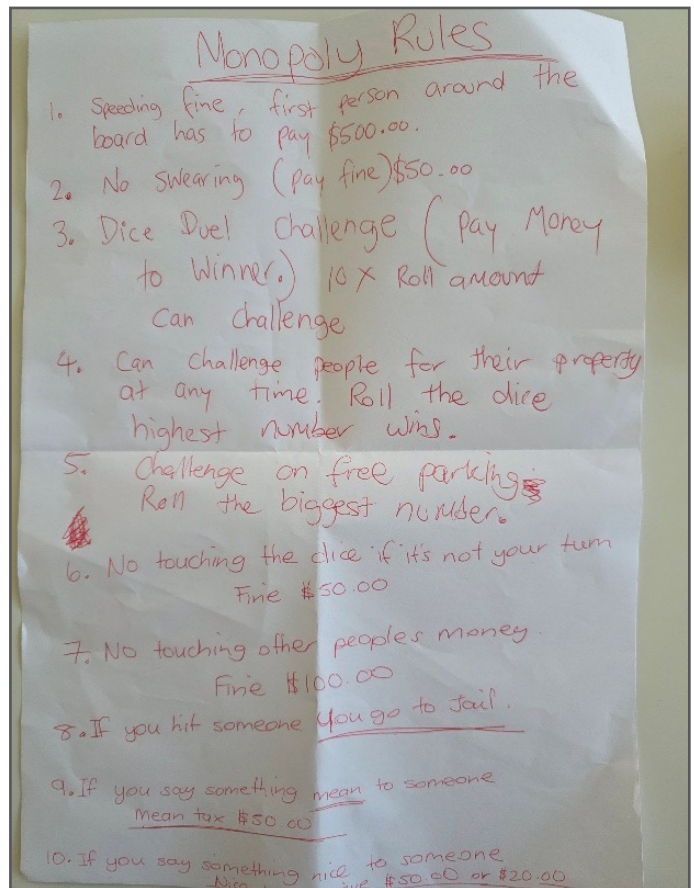 Monopoly Rules
1. Speeding fine, first person around the
board has to pay $500.00.
2. No swearing (pay fine) $50.00
3. Dice Duel Challenge (Pay Money
to Winner.) 10 X Roll amount
Can Challenge
4. Can challenge people for their property
at any time. Roll the dice
highest number wins.
5. Challenge on free parking
Roll the biggest number.
6. No touching the dice if it's not your turn
Fine $50.00
7. No touching other peoples money.
Fine $100.00
8. If you hit someone you go to Jail.
9. If you say something mean to someone
Mean tax $50.00
10. If you say something nice to someone
Nice $50.00 or $20.00